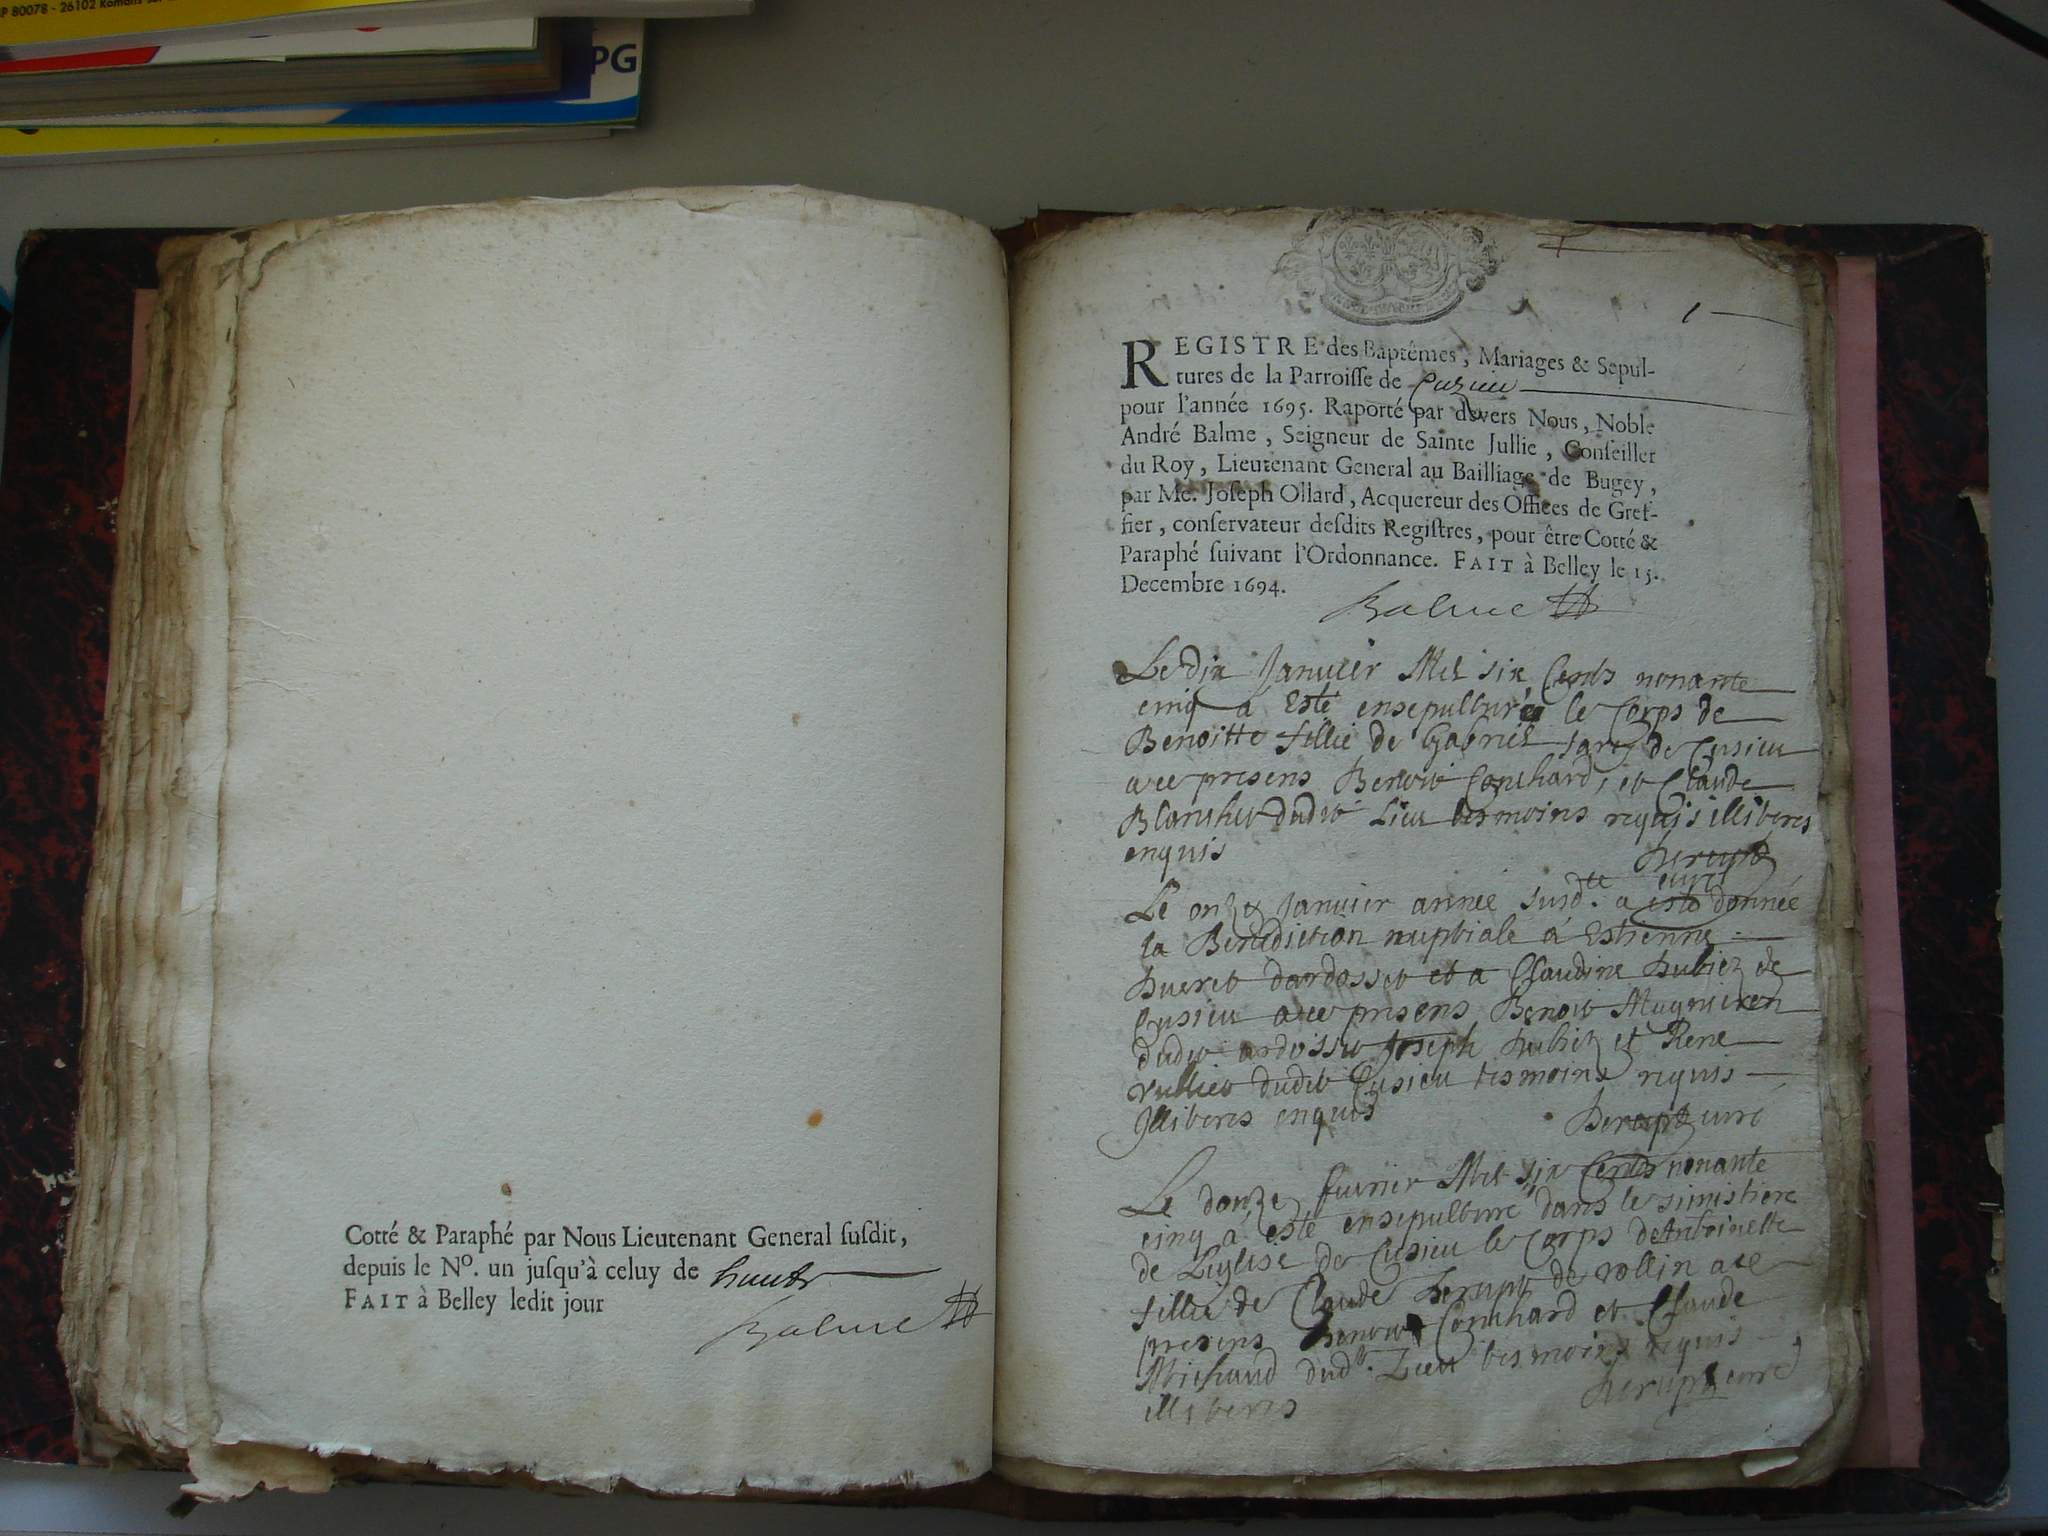 P 80078 - 26102 Romans
PG
Cotté & Paraphé par Nous Lieutenant General ſuſdit,
depuis le Nº. un juſqu'à celuy de huict
FAIT à Belley ledit jour
Balme
1
REGISTRE des Baptêmes, Mariages & Sepul-
tures de la Parroiſſe de Cuzieu
pour l'année 1695. Raporté par devers Nous, Noble
André Balme, Seigneur de Sainte Jullie, Conſeiller
du Roy, Lieutenant General au Bailliage de Bugey,
par Me. Joſeph Ollard, Acquereur des Offices de Gref-
fier, conſervateur deſdits Regiſtres, pour être Cotté &
Paraphé ſuivant l'Ordonnance. FAIT à Belley le 15.
Decembre 1694.
Balme
Le dix Janvier Mil six Cents nonante
cinq a Esté ensepulturé le Corps de
Benoitte fillie de Gabriel de Cusieu
a ce presens Benoit Conchard, et Claude
Blanchet dudit Lieu tesmoins requis illiteres
enquis
Herupt
curé
Le onze Janvier année susd.te a esté donnée
la Benediction nuptiale á Estienne
Hueret dardosset et a Claudine hubiez de
Cusieu a ce presens Benoit
dudit ardosset Joseph hubiez et Rene
Vulliet dudit Cusieu tesmoins requis
Illiteres enquis
Herupt curé
Le douze fuvrier Mil six Cents nonante
cinq á esté ensepulturé dans le simistiere
de Leglise de Cusieu le Corps de Anthoinette
fillie de Claude Herupt de rollin a ce
presens Benoit Conchard et Claude
Michaud dud.t Lieu tesmoins requis
illiteres
Herupt curé